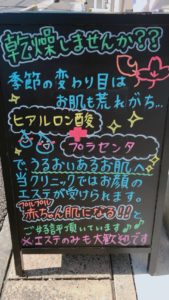 乾燥しませんか??
季節の変わり目は
お肌も荒れがち…
ヒアルロン酸
プラセンタ
で、うるおいあるお肌へ
当クリニックではお顔の
エステが受けられます。
プルプル
赤ちゃん肌になる!!と
ご好評頂いています♪♪
※エステのみも大歓迎です